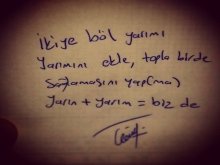 ikiye böl yarımı
yarımını ekle, topla birde
sağlamasını yap(ma)
yarın + yarım = biz de